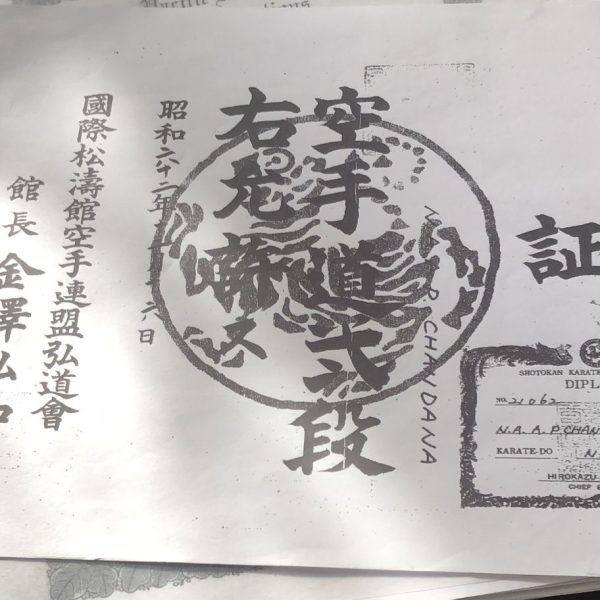 証
空手道弐段
右允許ス
昭和六十二年 六日
國際松濤館空手連盟弘道會
館長 金澤弘和
P CHANDANA
SHOTOKAN KARATE
DIPL
NO. 21062
N.A.A.P CHAN
KARATE-DO N
HIROKAZU
CHIEF